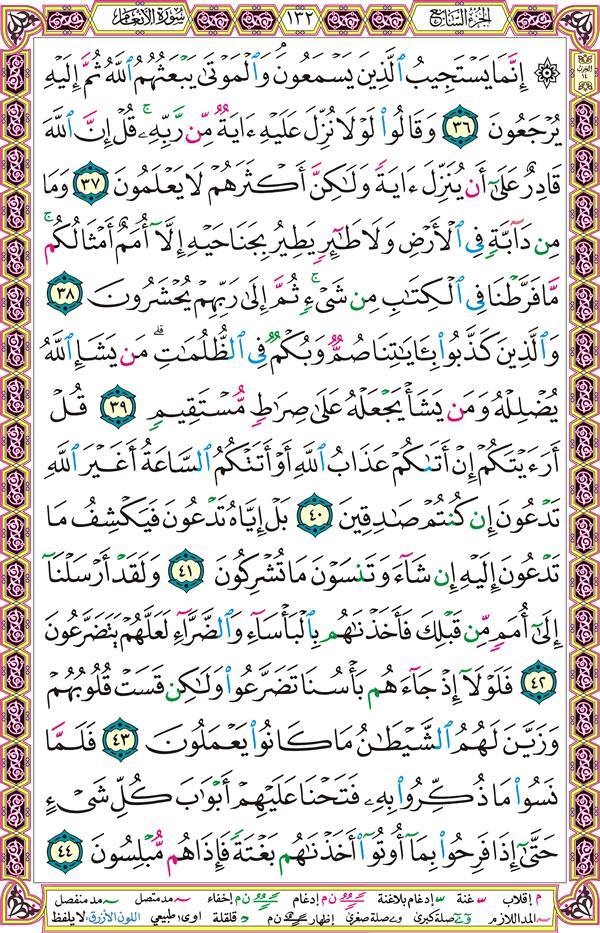 الجزء السابع
١٣٢
سورة الأنعام
الحزب
١٤
۞ إِنَّمَا يَسْتَجِيبُ ٱلَّذِينَ يَسْمَعُونَ وَٱلْمَوْتَىٰ يَبْعَثُهُمُ ٱللَّهُ ثُمَّ إِلَيْهِ
يُرْجَعُونَ ٣٦ وَقَالُوا۟ لَوْلَا نُزِّلَ عَلَيْهِ ءَايَةٌ مِّن رَّبِّهِۦ ۚ قُلْ إِنَّ ٱللَّهَ
قَادِرٌ عَلَىٰٓ أَن يُنَزِّلَ ءَايَةً وَلَـٰكِنَّ أَكْثَرَهُمْ لَا يَعْلَمُونَ ٣٧ وَمَا
مِن دَآبَّةٍ فِى ٱلْأَرْضِ وَلَا طَـٰٓئِرٍ يَطِيرُ بِجَنَاحَيْهِ إِلَّآ أُمَمٌ أَمْثَالُكُم ۚ
مَّا فَرَّطْنَا فِى ٱلْكِتَـٰبِ مِن شَىْءٍ ۚ ثُمَّ إِلَىٰ رَبِّهِمْ يُحْشَرُونَ ٣٨
وَٱلَّذِينَ كَذَّبُوا۟ بِـَٔايَـٰتِنَا صُمٌّ وَبُكْمٌ فِى ٱلظُّلُمَـٰتِ ۗ مَن يَشَإِ ٱللَّهُ
يُضْلِلْهُ وَمَن يَشَأْ يَجْعَلْهُ عَلَىٰ صِرَٰطٍ مُّسْتَقِيمٍ ٣٩ قُلْ
أَرَءَيْتَكُمْ إِنْ أَتَىٰكُمْ عَذَابُ ٱللَّهِ أَوْ أَتَتْكُمُ ٱلسَّاعَةُ أَغَيْرَ ٱللَّهِ
تَدْعُونَ إِن كُنتُمْ صَـٰدِقِينَ ٤٠ بَلْ إِيَّاهُ تَدْعُونَ فَيَكْشِفُ مَا
تَدْعُونَ إِلَيْهِ إِن شَآءَ وَتَنسَوْنَ مَا تُشْرِكُونَ ٤١ وَلَقَدْ أَرْسَلْنَآ
إِلَىٰٓ أُمَمٍ مِّن قَبْلِكَ فَأَخَذْنَـٰهُم بِٱلْبَأْسَآءِ وَٱلضَّرَّآءِ لَعَلَّهُمْ يَتَضَرَّعُونَ
٤٢ فَلَوْلَآ إِذْ جَآءَهُم بَأْسُنَا تَضَرَّعُوا۟ وَلَـٰكِن قَسَتْ قُلُوبُهُمْ
وَزَيَّنَ لَهُمُ ٱلشَّيْطَـٰنُ مَا كَانُوا۟ يَعْمَلُونَ ٤٣ فَلَمَّا
نَسُوا۟ مَا ذُكِّرُوا۟ بِهِۦ فَتَحْنَا عَلَيْهِمْ أَبْوَٰبَ كُلِّ شَىْءٍ
حَتَّىٰٓ إِذَا فَرِحُوا۟ بِمَآ أُوتُوٓا۟ أَخَذْنَـٰهُم بَغْتَةً فَإِذَا هُم مُّبْلِسُونَ ٤٤
م إقلاب غنة إدغام بلاغنة ن م إدغام ن م إخفاء مد متصل مد منفصل
المد اللازم صلة كبرى صلة صغرى إظهار ن م قلقلة اوى طبيعي اللون الأزرق لا يلفظ